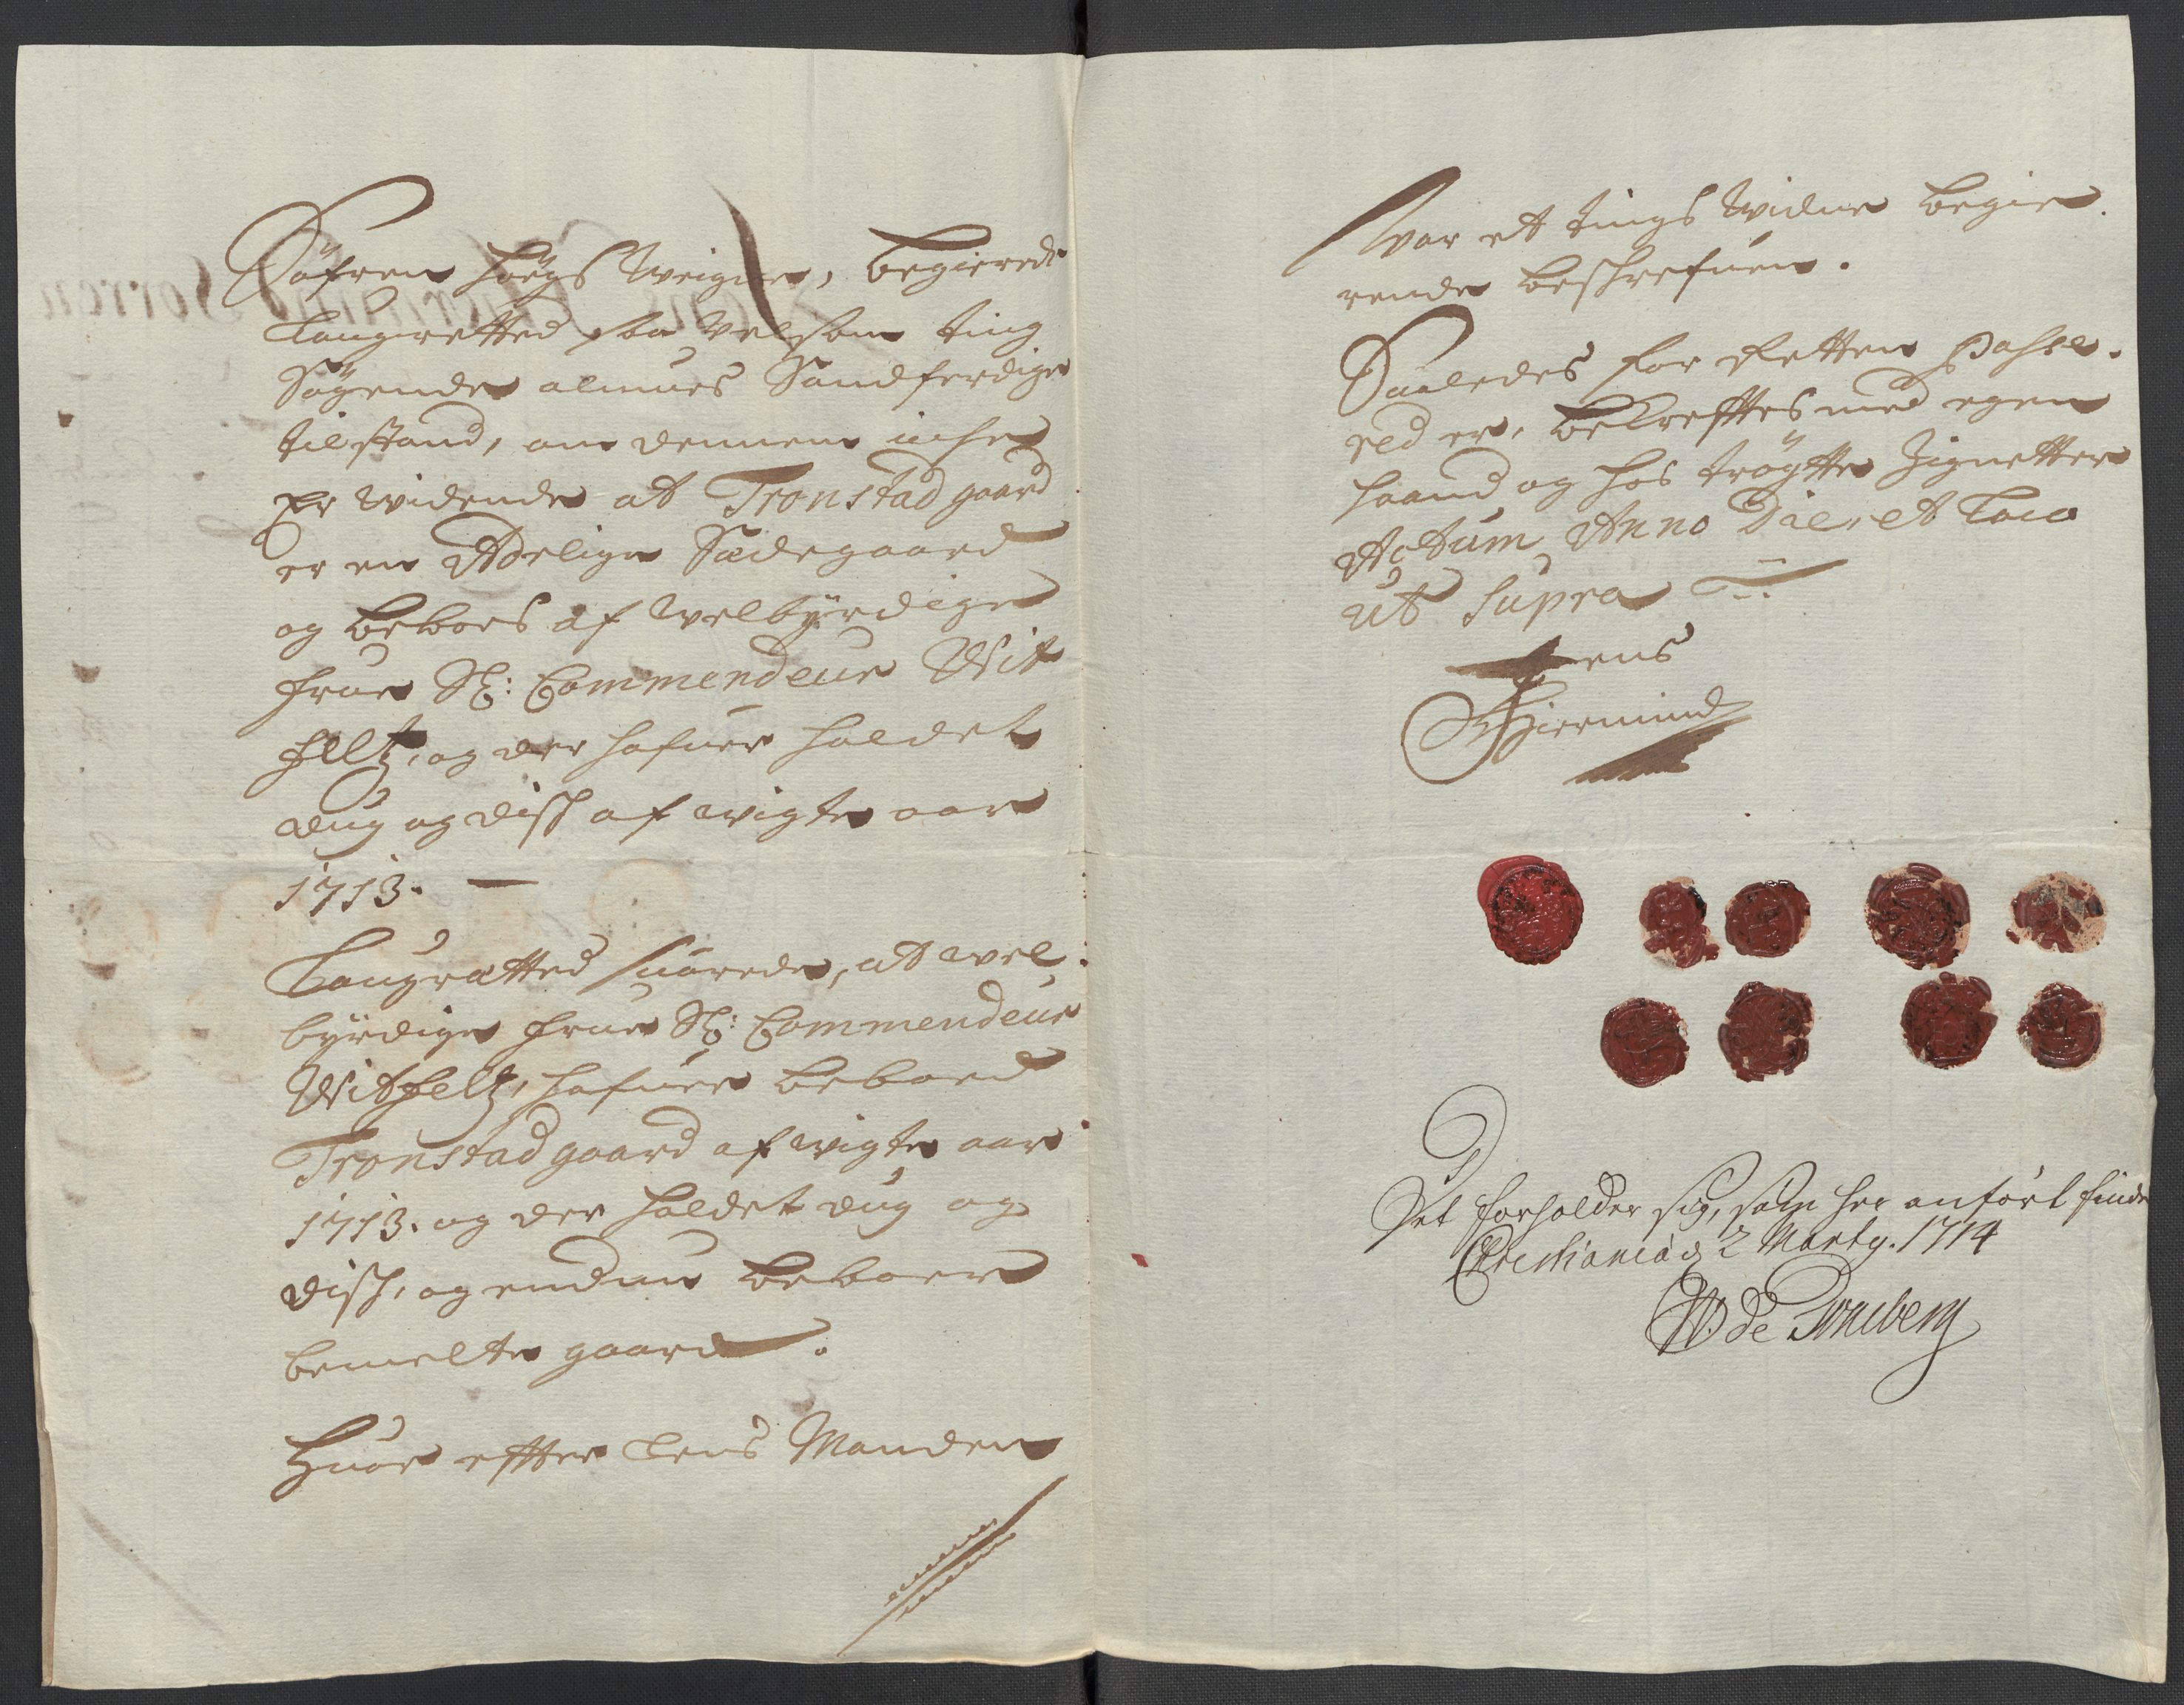 Söfren Höegs Weigne, begierede
Laugretted saa velsom ting
Sögende almues Sandferdige
tilstand, om dennem icke
Er widende at Tronstad gaard
er en Adelige Sædegaard
og beboes af Welbyrdige
Frue Sl: Commendeur Wit
feltz, og der hafuer holdet
dug og disk af wigte aar
1713. —
Laugrætted suarede, at wel
byrdige Frue Sl: Commendeur
Witfeltz, hafuer beboed
Tronstad gaard af wigte aar
1713. og der holdet dug og
disk, og endnu beboer
bemelte gaard.
Huor effter Lens Manden
war et tings Widne begie
rende beskrefuen.
Saaledes for Retten passe-
red er, bekrefftes med egen
haand og hos trögte Zignetter
Actum Anno Die, et Loco
ut Supra
Jens
Hiermind
Det forholder sig, som her anfört finde
Christiania d 2 Marty. 1714
W de Tonsberg